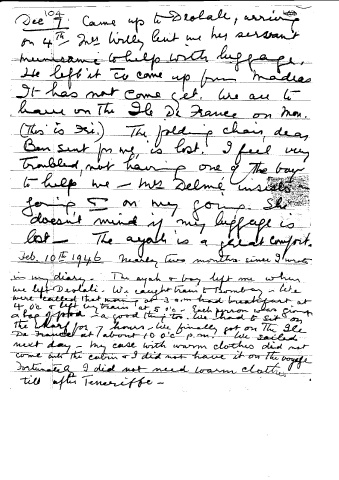 Dec 7 10th. Came up to Deolali, arriving
on 4th. Mrs Willy lent me her servant
to help with luggage.
He left it to come up from Madras
It has not come yet. We are to
leave on the Ile De France on Mon.
(This is Fri.) The folding chair, dear
Ben sent for me, is lost. I feel very
troubled, not having one of the boys
to help me – Mrs Delmé insists
going & on my going. She
doesn't mind if my luggage is
lost – The ayah is a great comfort.
Feb. 10th 1946 Nearly two months since I wrote
in my diary. The ayah & boy left me when
we left Deolali. We caught train to Bombay – We
were called that morning at 3 a.m. had breakfast at
4 o'c & left by train at 5 o'c – Each person was given
a bag of food – a good thing too. We had to sit on
the wharf for 7 hours – We finally got on The Ile
De France at about 10 o'c p.m. We sailed
next day – My case with warm clothes did not
come into the cabin & I did not have it on the voyage
Fortunately I did not need warm clothes
till after Teneriffe –